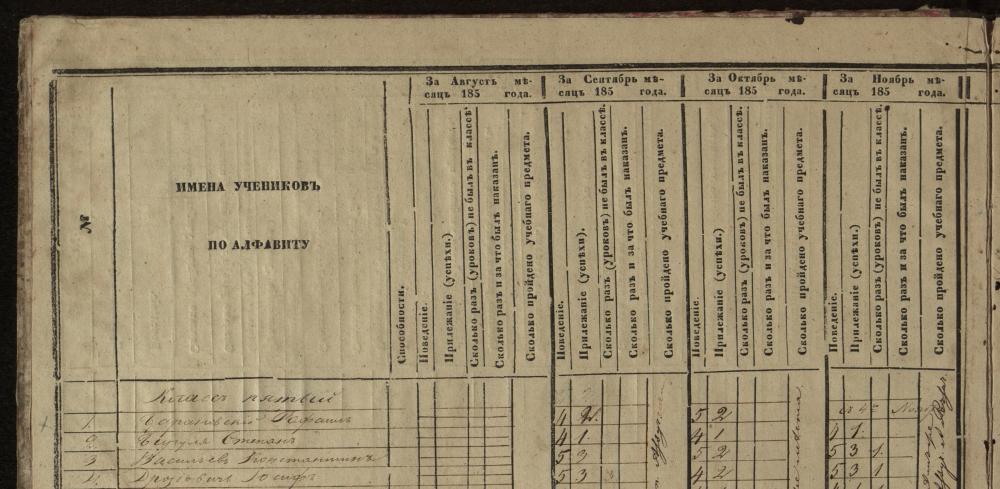 №
ИМЕНА УЧЕНИКОВЪ
ПО АЛФАВИТУ
Способности.
За Августъ мѣ-
сяцъ 185 года.
Поведеніе.
Прилежаніе (успѣхи.)
Сколько разъ (уроковъ) не былъ въ классѣ.
Сколько разъ и за что былъ наказанъ.
Сколько пройдено учебнаго предмета.
За Сентябрь мѣ-
сяцъ 185 года.
Поведеніе.
Прилежаніе (успѣхи).
Сколько разъ (уроковъ) не былъ въ классѣ.
Сколько разъ и за что былъ наказанъ.
Сколько пройдено учебнаго предмета.
За Октябрь мѣ-
сяцъ 185 года.
Поведеніе.
Прилежаніе (успѣхи)
Сколько разъ (уроковъ) не былъ въ классѣ.
Сколько разъ и за что былъ наказанъ.
Сколько пройдено учебнаго предмета.
За Ноябрь мѣ-
сяцъ 185 года.
Поведеніе.
Прилежаніе (успѣхи.)
Сколько разъ (уроковъ) не былъ въ классѣ.
Сколько разъ и за что былъ наказанъ.
Сколько пройдено учебнаго предмета.
Классъ пятый
1. 4 2 5 2
2 Степанъ 4 1 4 1 4 1
3 Васильевъ Константинъ 5 3 5 2 5 3 1
4. Іосифъ 5 3 4 2 5 3 1